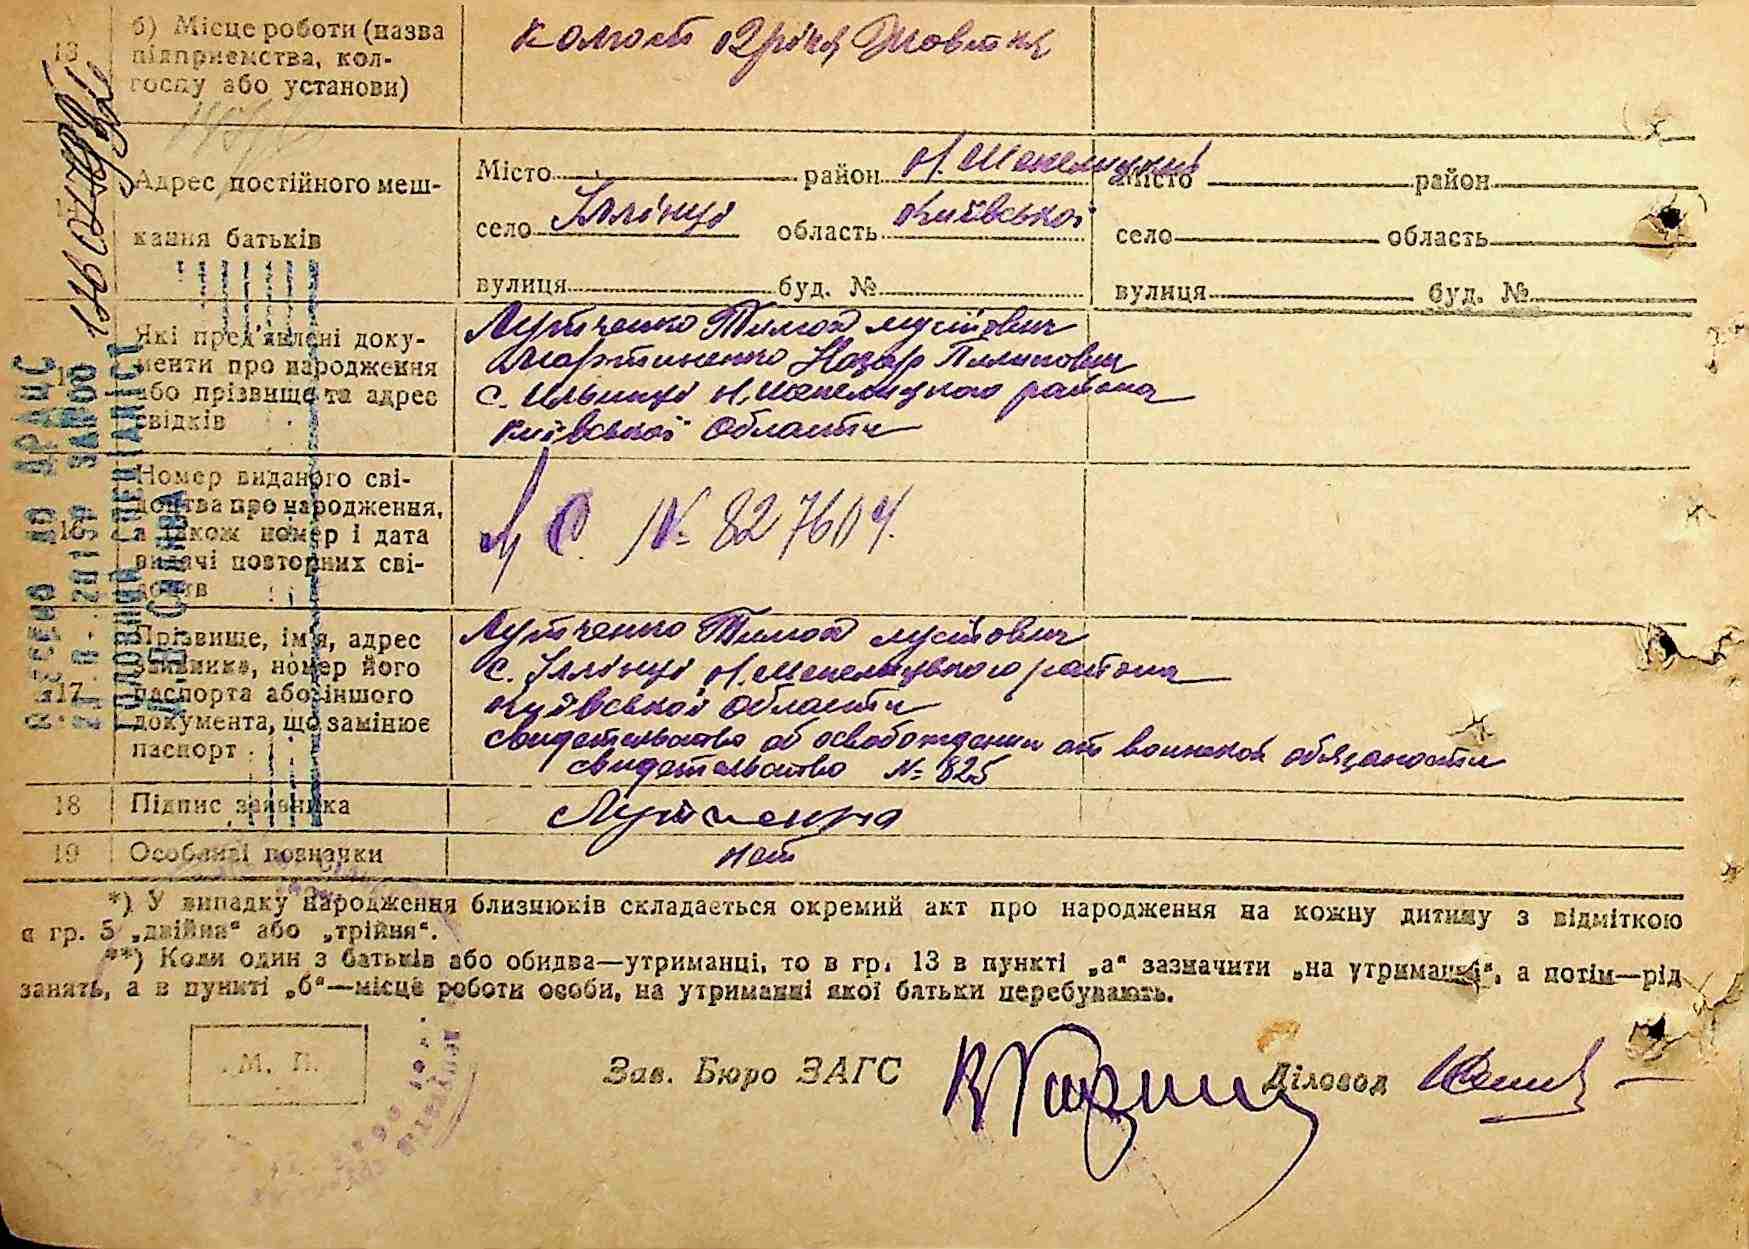 13
б) Місце роботи (назва
підприємства, кол-
госпу або установи)
Адрес постійного меш-
кання батьків
Місто район Н. Шепелицкий
село Іллінці область Київської
вулиця буд. №
місто район
село область
вулиця буд. №
Які пред'явлені доку-
менти про народження
або прізвище та адрес
свідків
Лутченко Тимох Мусійович
Мартиненко Назар Пилипович
с. Ильинці Н. Шепелицкого района
Київської области
16
Номер виданого сві-
доцтва про народження,
а також номер і дата
видачі повторних сві-
доцтв
№ 827604.
17
Прізвище, ім'я, адрес
заявника, номер його
паспорта або іншого
документа, що замінює
паспорт
Лутченко Тимох Мусійович
с. Іллінці Н. Шепелицького района
Київської области
свидетельство об освобождении от воинской обязаности
свидетельство № 825
18 Підпис заявника Лутченко
19 Особливі позначки нет
*) У випадку народження близнюків складається окремий акт про народження на кожну дитину з відміткою
в гр. 5 „двійня“ або „трійня“.
**) Коли один з батьків або обидва—утриманці, то в гр. 13 в пункті „а“ зазначити „на утриманні“, а потім—рід
занять, а в пункті „б“—місце роботи особи, на утриманні якої батьки перебувають.
М. П.
Зав. Бюро ЗАГС
Діловод
ВНЕСЕНО ДО ДРАЦС
ГОЛОВНИЙ СПЕЦІАЛІСТ